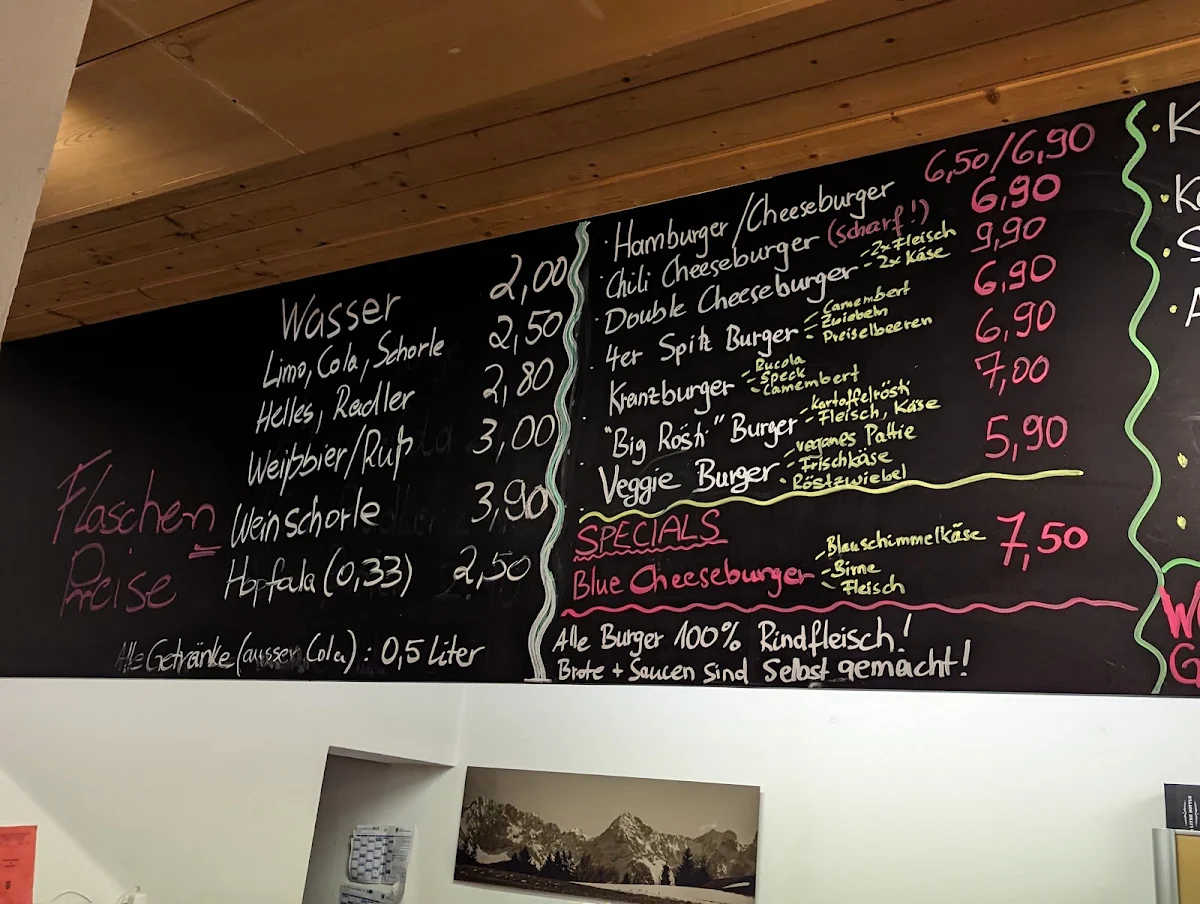 Wasser 2,00
Limo, Cola, Schorle 2,50
Helles, Radler 2,80
Weißbier/Ruß 3,00
Weinschorle 3,90
Hopfala (0,33) 2,50
Flaschen
Preise
Alle Getränke (ausser Cola) : 0,5 Liter
· Hamburger/Cheeseburger 6,50/6,90
· Chili Cheeseburger (scharf!) 6,90
· Double Cheeseburger - 2x Fleisch 9,90
- 2x Käse
· 4er Spitz Burger - Camembert 6,90
- Zwiebeln
- Preiselbeeren
· Kranzburger - Rucola 6,90
- Speck
- Camembert
· "Big Rösti" Burger - Kartoffelrösti 7,00
- Fleisch, Käse
· Veggie Burger - veganes Pattie 5,90
- Frischkäse
- Röstzwiebel
SPECIALS
Blue Cheeseburger - Blauschimmelkäse 7,50
- Birne
- Fleisch
Alle Burger 100% Rindfleisch!
Brote + Saucen sind Selbst gemacht!